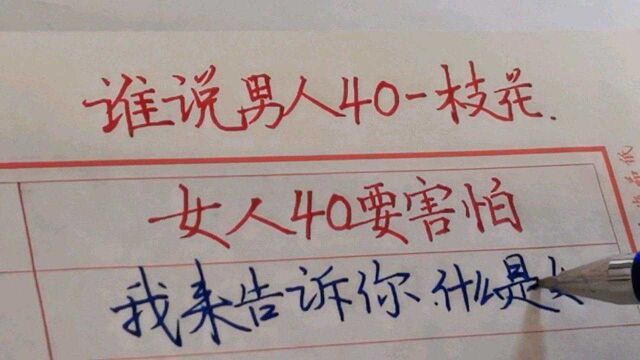 谁说男人40一枝花.
女人40要害怕
我来告诉你.什么是